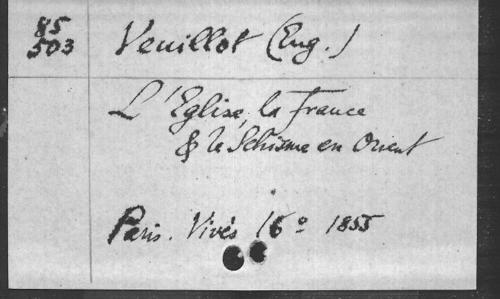 85
503
Veuillot (Eug.)
L'Eglise, la France
& le Schisme en Orient
Paris. Vivès 16º 1855